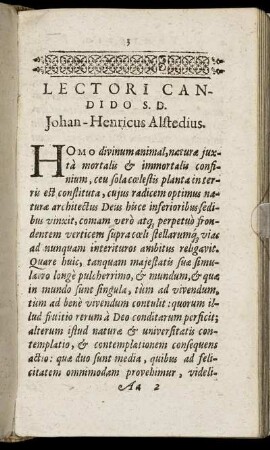 3
LECTORI CAN-
DIDO S. D.
Johan-Henricus Alstedius.
HOMO divinum animal, naturæ jux-
tà mortalis & immortalis confi-
nium, ceu sola cœlestis planta in ter-
ris est constituta, cujus radicem optimus na-
turæ architectus Deus hisce inferioribus sedi-
bus vinxit, comam verò atq; perpetuò fron-
dentem verticem supra cœli stellarumq; vias
ad nunquam interituros ambitus religavit.
Quare huic, tanquam majestatis suæ simu-
lacro longè pulcherrimo, & mundum, & quæ
in mundo sunt singula, tùm ad vivendum,
tùm ad benè vivendum contulit: quorum il-
lud fruitio rerum à Deo conditarum perficit;
alterum istud naturæ & universitatis con-
templatio, & contemplationem consequens
actio: quæ duo sunt media, quibus ad feli-
citatem omnimodam provehimur, videli-
Aa 2